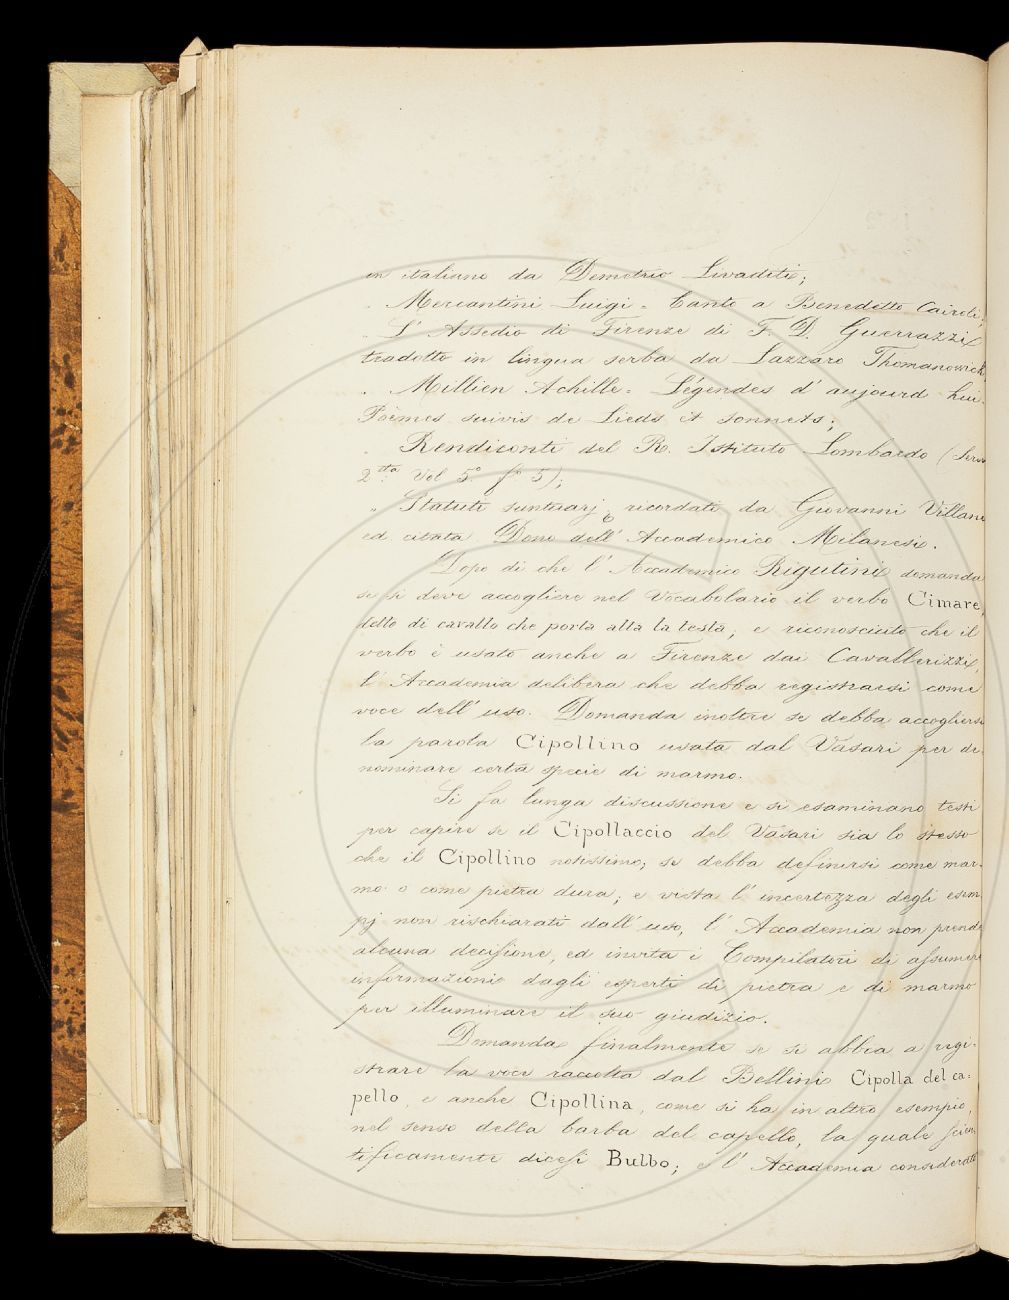 in italiano da Demetrio Livaditi;
„ Mercantini Luigi = Canto a Benedetto Cairoli;
„ L' Assedio di Firenze di F. D. Guerrazzi
tradotto in lingua serba da Lazzaro Thomanowich
„ Millien Achille = Légendes d' aujourd hui.
Poèmes suivis de Lieds et sonnets;
„ Rendiconti del R. Istituto Lombardo (Serie
2.tta Vol 5° f° 5);
„ Statuti suntuarj ricordati da Giovanni Villani
ed è citata. Dono dell' Accademico Milanesi.
Dopo di che l' Accademico Rigutini domanda
se si deve accogliere nel Vocabolario il verbo Cimare,
detto di cavallo che porta alta la testa; e riconosciuto che il
verbo è usato anche a Firenze dai Cavallerizzi,
l' Accademia delibera che debba registrarsi come
voce dell' uso. Domanda inoltre se debba accogliersi
la parola Cipollino usata dal Vasari per de-
nominare certa specie di marmo.
Si fa lunga discussione e si esaminano testi
per capire se il Cipollaccio del Vasari sia lo stesso
che il Cipollino notissimo; se debba definirsi come mar-
mo o come pietra dura; e vista l' incertezza degli esem
pj non rischiarati dall' uso, l' Accademia non prende
alcuna decisione, ed invita i Compilatori di assumere
informazioni dagli esperti di pietra e di marmo
per illuminare il suo giudizio.
Domanda finalmente se si abbia a regi-
strare la voce raccolta dal Bellini Cipolla del ca=
pello, e anche Cipollina, come si ha in altro esempio,
nel senso della barba del capello, la quale scien
tificamente dicesi Bulbo; e l' Accademia considerato